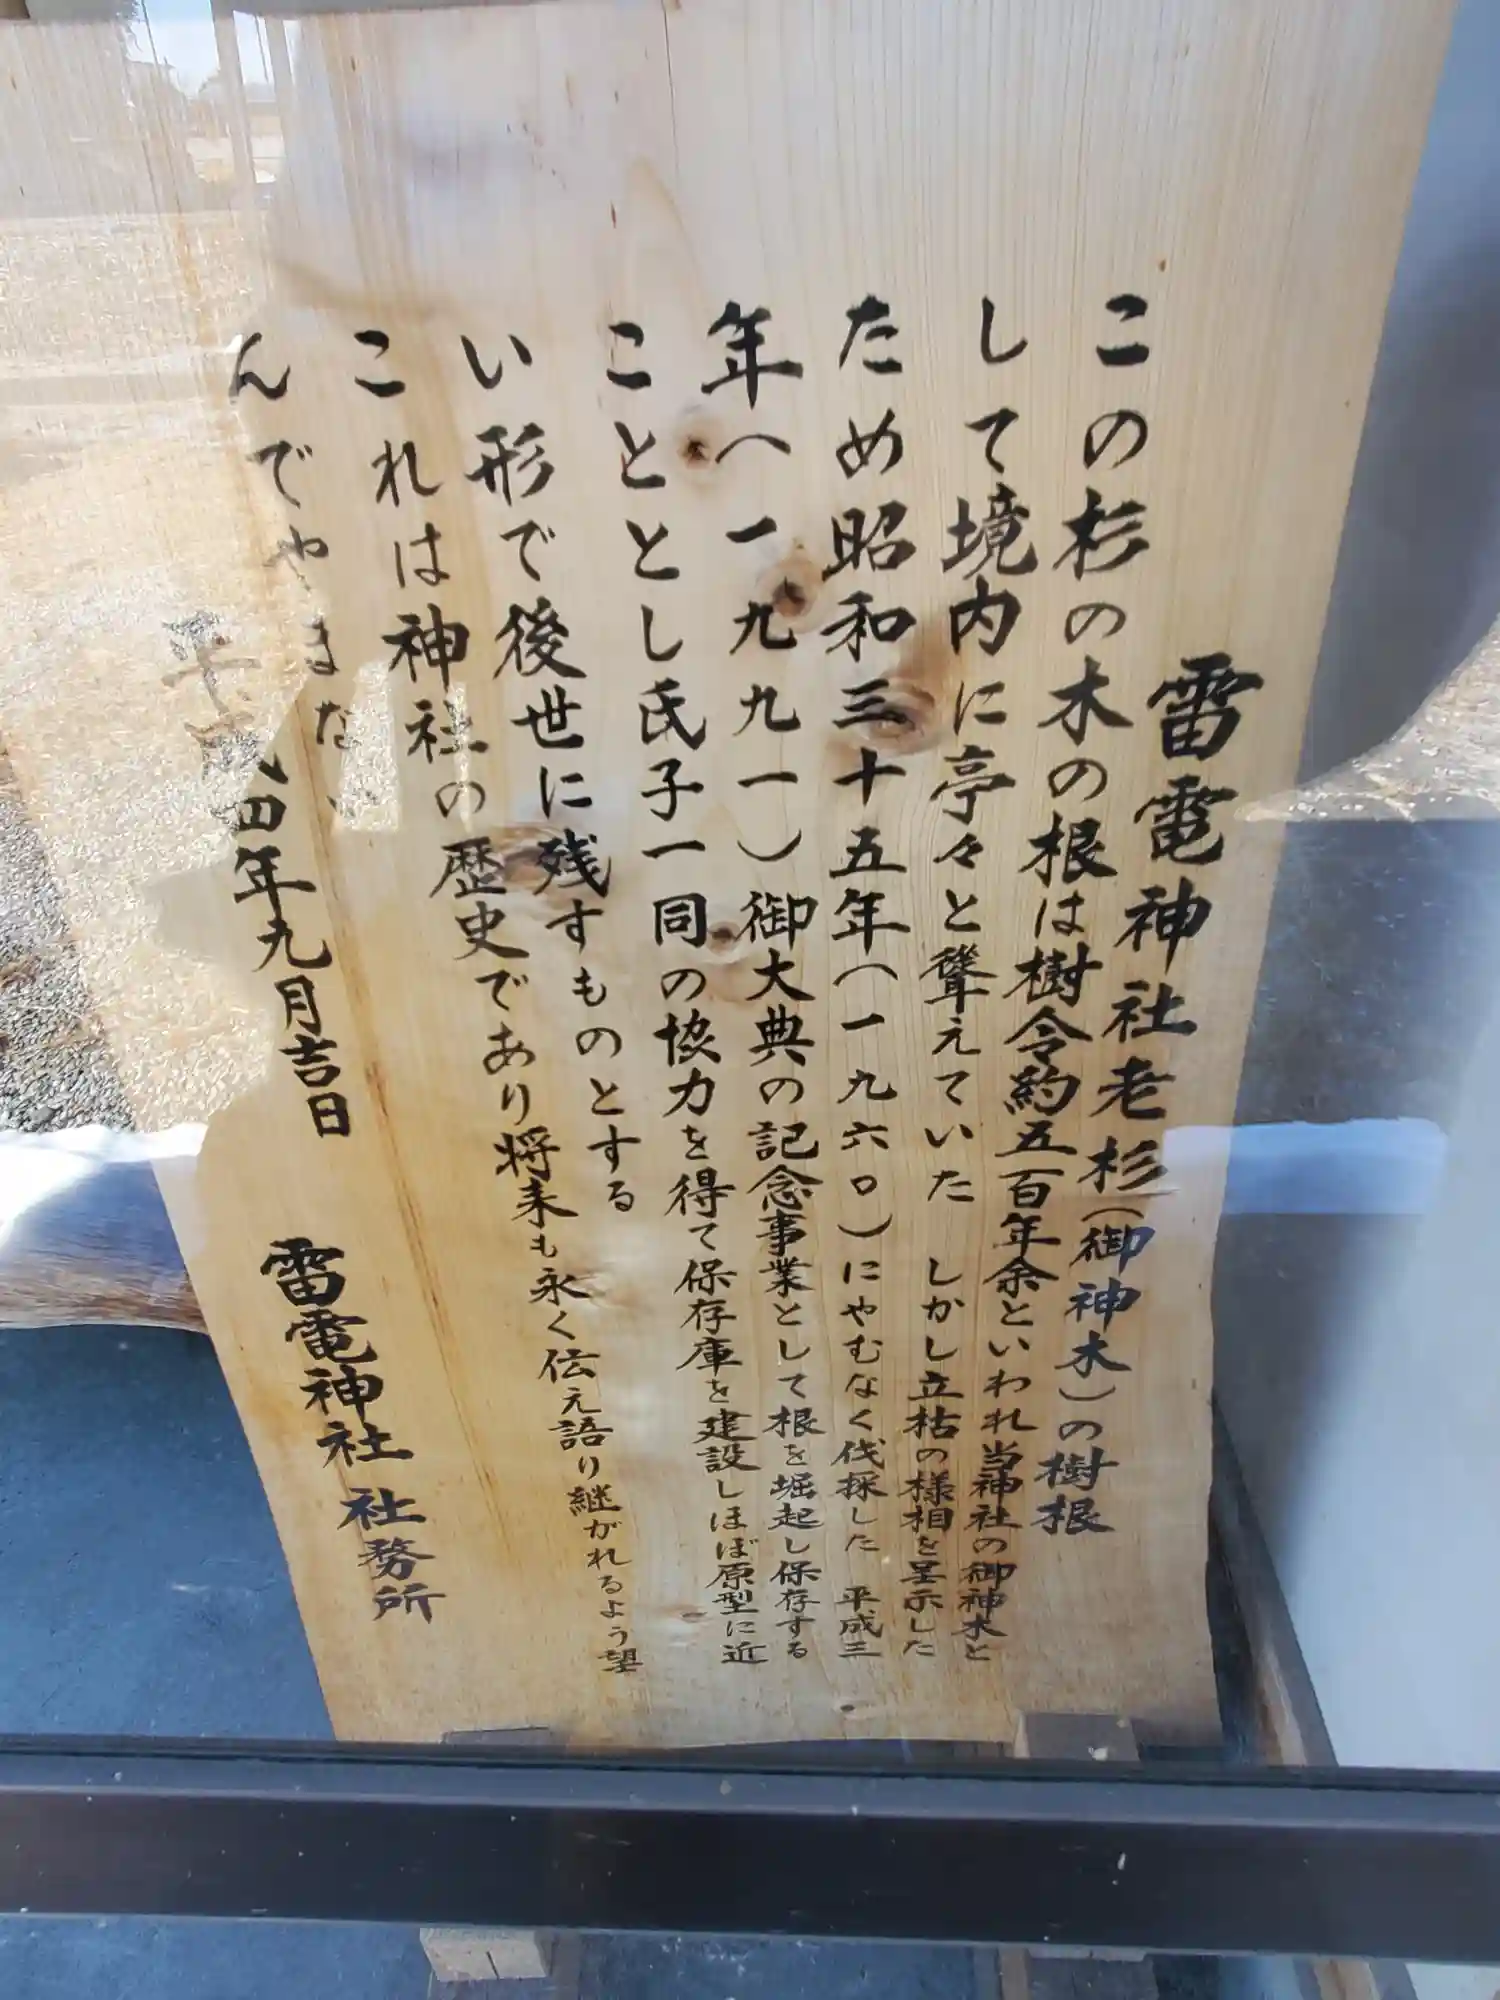 雷電神社老杉(御神木)の樹根
この杉の木の根は樹令約五百年余といわれ当神社の御神木と
して境内に亭々と聳えていた しかし立枯の様相を呈示した
ため昭和三十五年(一九六〇)にやむなく伐採した 平成三
年(一九九一)御大典の記念事業として根を堀起し保存する
こととし氏子一同の協力を得て保存庫を建設しほぼ原型に近
い形で後世に残すものとする
これは神社の歴史であり将来も永く伝え語り継がれるよう望
んでやまない
平成四年九月吉日
雷電神社 社務所